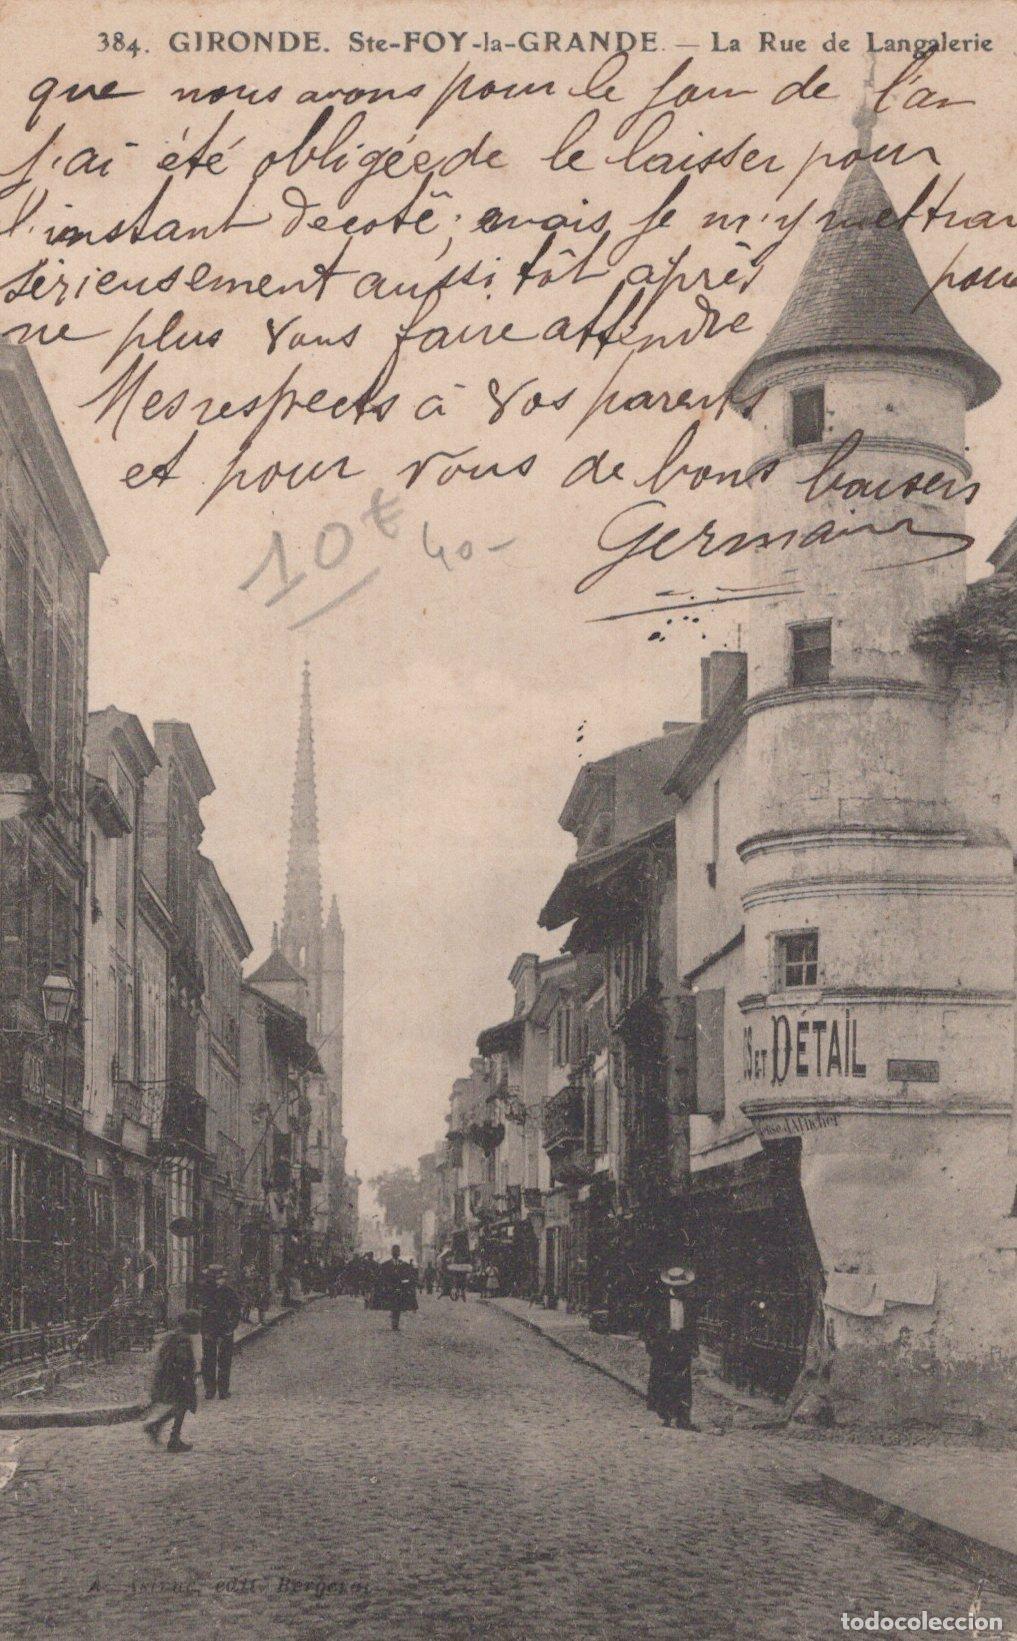 384. GIRONDE. Ste-FOY-la-GRANDE. — La Rue de Langalerie
que nous avons pour le jour de l'an
j'ai été obligée de le laisser pour
l'instant de coté; mais je m'y mettrai
sérieusement aussitôt après pour
ne plus vous faire attendre
Mes respects à vos parents
et pour vous de bons baisers
Germaine
10 €
40-
S ET DÉTAIL
d'Afficher
édit. Bergerac
todocoleccion